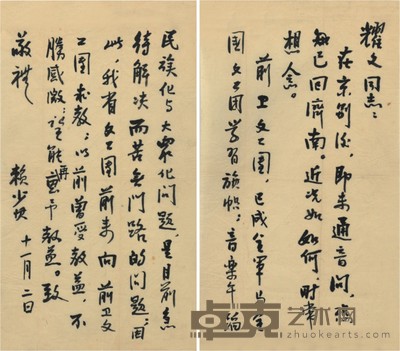 耀文同志：
在京别后，即未通音问，
每已回济南。近况如何，时常
想念。
前卫文工团，已成全军与全
国文工团学习旗帜；音乐午
民族化与大众化问题，是目前急
待解决而苦无门路的问题；因
此，我省文工团前来向前卫文
工团求教；以前曾受教益，不
胜感激；望能再惠予教益。致
敬礼
赖少其 十一月二日
卓克艺术网